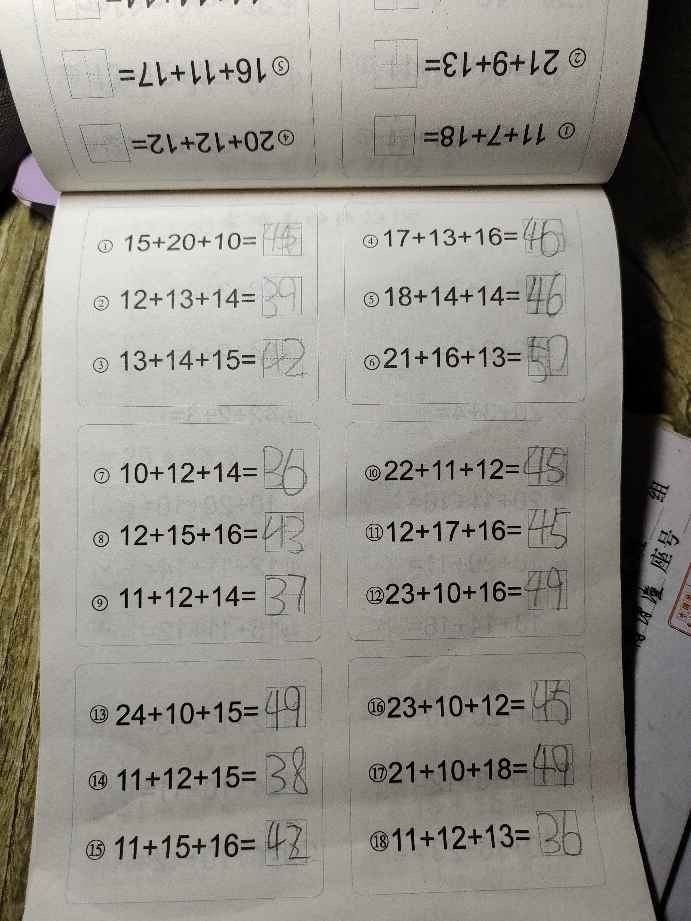 ⑤ 16+11+17=
② 21+9+13=
④ 20+12+12=
① 11+7+18=
① 15+20+10=45
④ 17+13+16=46
② 12+13+14=39
⑤ 18+14+14=46
③ 13+14+15=42
⑥ 21+16+13=50
⑦ 10+12+14=36
⑩ 22+11+12=45
⑧ 12+15+16=43
⑪ 12+17+16=45
⑨ 11+12+14=37
⑫ 23+10+16=49
⑬ 24+10+15=49
⑯ 23+10+12=45
⑭ 11+12+15=38
⑰ 21+10+18=49
⑮ 11+15+16=42
⑱ 11+12+13=36
组
座号